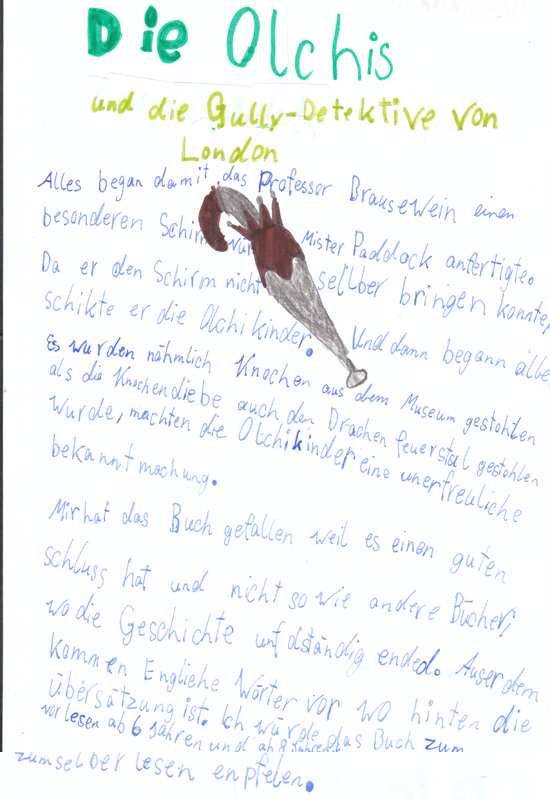 Die Olchis
und die Gully-Detektive von
London
Alles began damit das Professor Brausewein einen
besonderen Schirm für Mister Paddock anfertigte.
Da er den Schirm nicht sellber bringen konnte,
schikte er die Olchikinder. Und dann begann älles
Es wurden nähmlich Knochen aus dem Museum gestohlen
als die Knochendiebe auch den Drachen feuerstul gestohlen
wurde, machten die Olchikinder eine unerfreuliche
bekanntmachung.
Mir hat das Buch gefallen weil es einen guten
schluss hat und nicht so wie andere Bücher,
wo die Geschichte unfdständig ended. Auserdem
kommen Englihe Wörter vor wo hinten die
übersätzung ist. Ich würde das Buch zum
vorlesen ab 6 Jahren und ab 8 Jahren
zum selber lesen enpfelen.